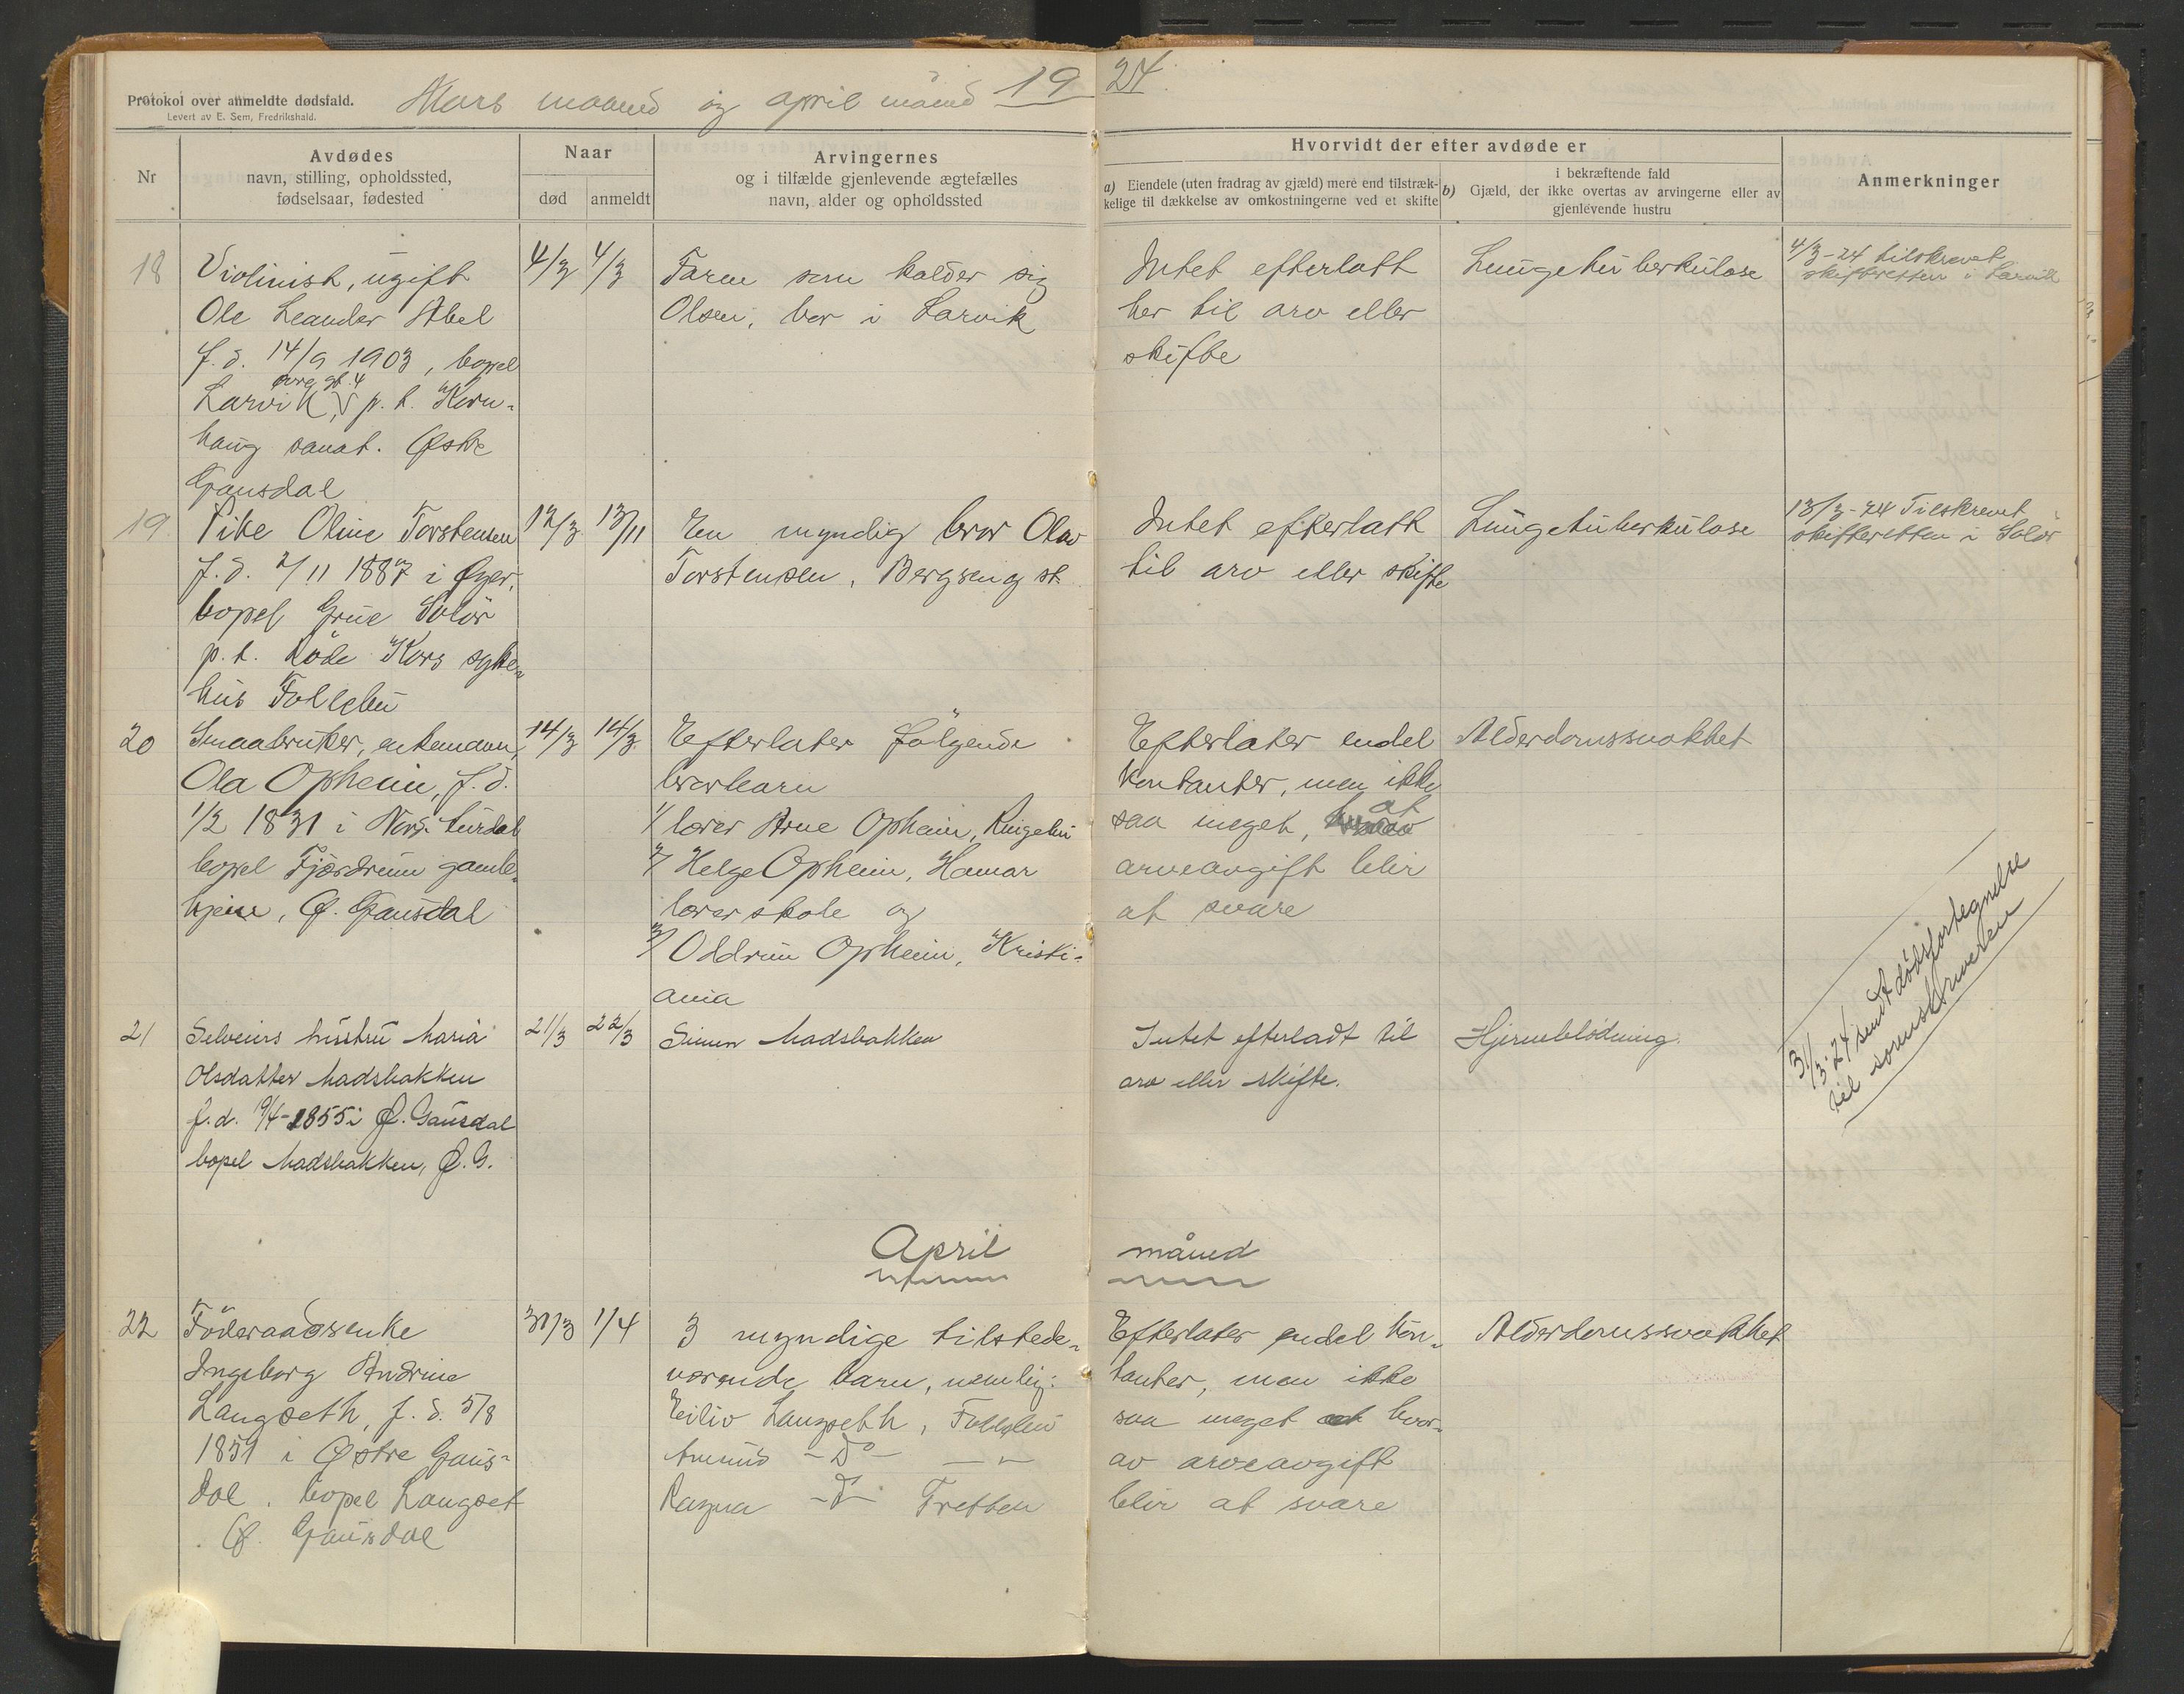 Protokol over anmeldte dødsfald.
Levert av E. Sem, Fredrikshald.
Mars maaned og april måned 1924
Nr
Avdødes
navn, stilling, opholdssted,
fødselsaar, fødested
Naar
død
anmeldt
Arvingernes
og i tilfælde gjenlevende ægtefælles
navn, alder og opholdssted
Hvorvidt der efter avdøde er
a) Eiendele (uten fradrag av gjæld) mere end tilstræk-
kelige til dækkelse av omkostningerne ved et skifte
i bekræftende fald
b) Gjæld, der ikke overtas av arvingerne eller av
gjenlevende hustru
Anmerkninger
18
Violinist, ugift
Ole Leander Abel
f. d. 14/9 1903, bopel
Larvik, p. t. Korn-
haug sanat. Østre
Gausdal
4/3
4/3
Faren som kalder sig
Olsen, bor i Larvik
Intet efterlatt
her til arv eller
skifte
Lungetuberkulose
4/3-24 tilskrevet
skifteretten i Larvik
19
Pike Oline Torstensen
f. d. 2/11 1887 i Øyer,
bopel Grue Solør
p. t. Røde Kors syke-
hus Follebu
12/3
13/11
En myndig bror Olav
Torstensen, Bergseng st.
Intet efterlatt
til arv eller skifte
Lungetuberkulose
13/3-24 Tilskrevet
skifteretten i Solør
20
Smaabruker, enkemann,
Ola Opheim, f. d.
1/2 1831 i Nord-Aurdal
bopel Fjærdrum gamle-
hjem, Ø. Gausdal
14/3
14/3
Efterlater følgende
brorbarn
1/ lærer Arne Opheim, Ringebu
2/ Helge Opheim, Hamar
lærerskole og
3/ Oddrun Opheim, Kristi-
ania
Efterlater endel
kontanter, men ikke
saa meget, at
arveavgift blir
at svare
Alderdomssvakhet
21
Selveiers hustru Maria
Olsdatter Madsbakken
f. d. 19/4-1855 i Ø. Gausdal
bopel Madsbakken, Ø. G.
21/3
22/3
Simen Madsbakken
Intet efterladt til
arv eller skifte.
Hjerneblødning
31/3-24 sendt dødsfortegnelse
til sorenskriveren
April måned
22
Føderaadsenke
Ingeborg Andrine
Langseth, f. d. 5/8
1851 i Østre Gaus-
dal, bopel Langset
Ø. Gausdal
31/3
1/4
3 myndige tilstede-
værende barn, nemlig:
Eiliv Langseth, Follebu
Amund -do- - " -
Ragna -do- Tretten
Efterlater endel kon-
tanter, men ikke
saa meget hvor-
av arveavgift
blir at svare
Alderdomssvakhet